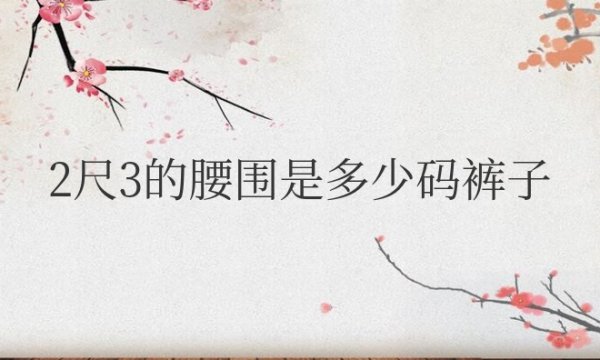 2尺3的腰围是多少码裤子